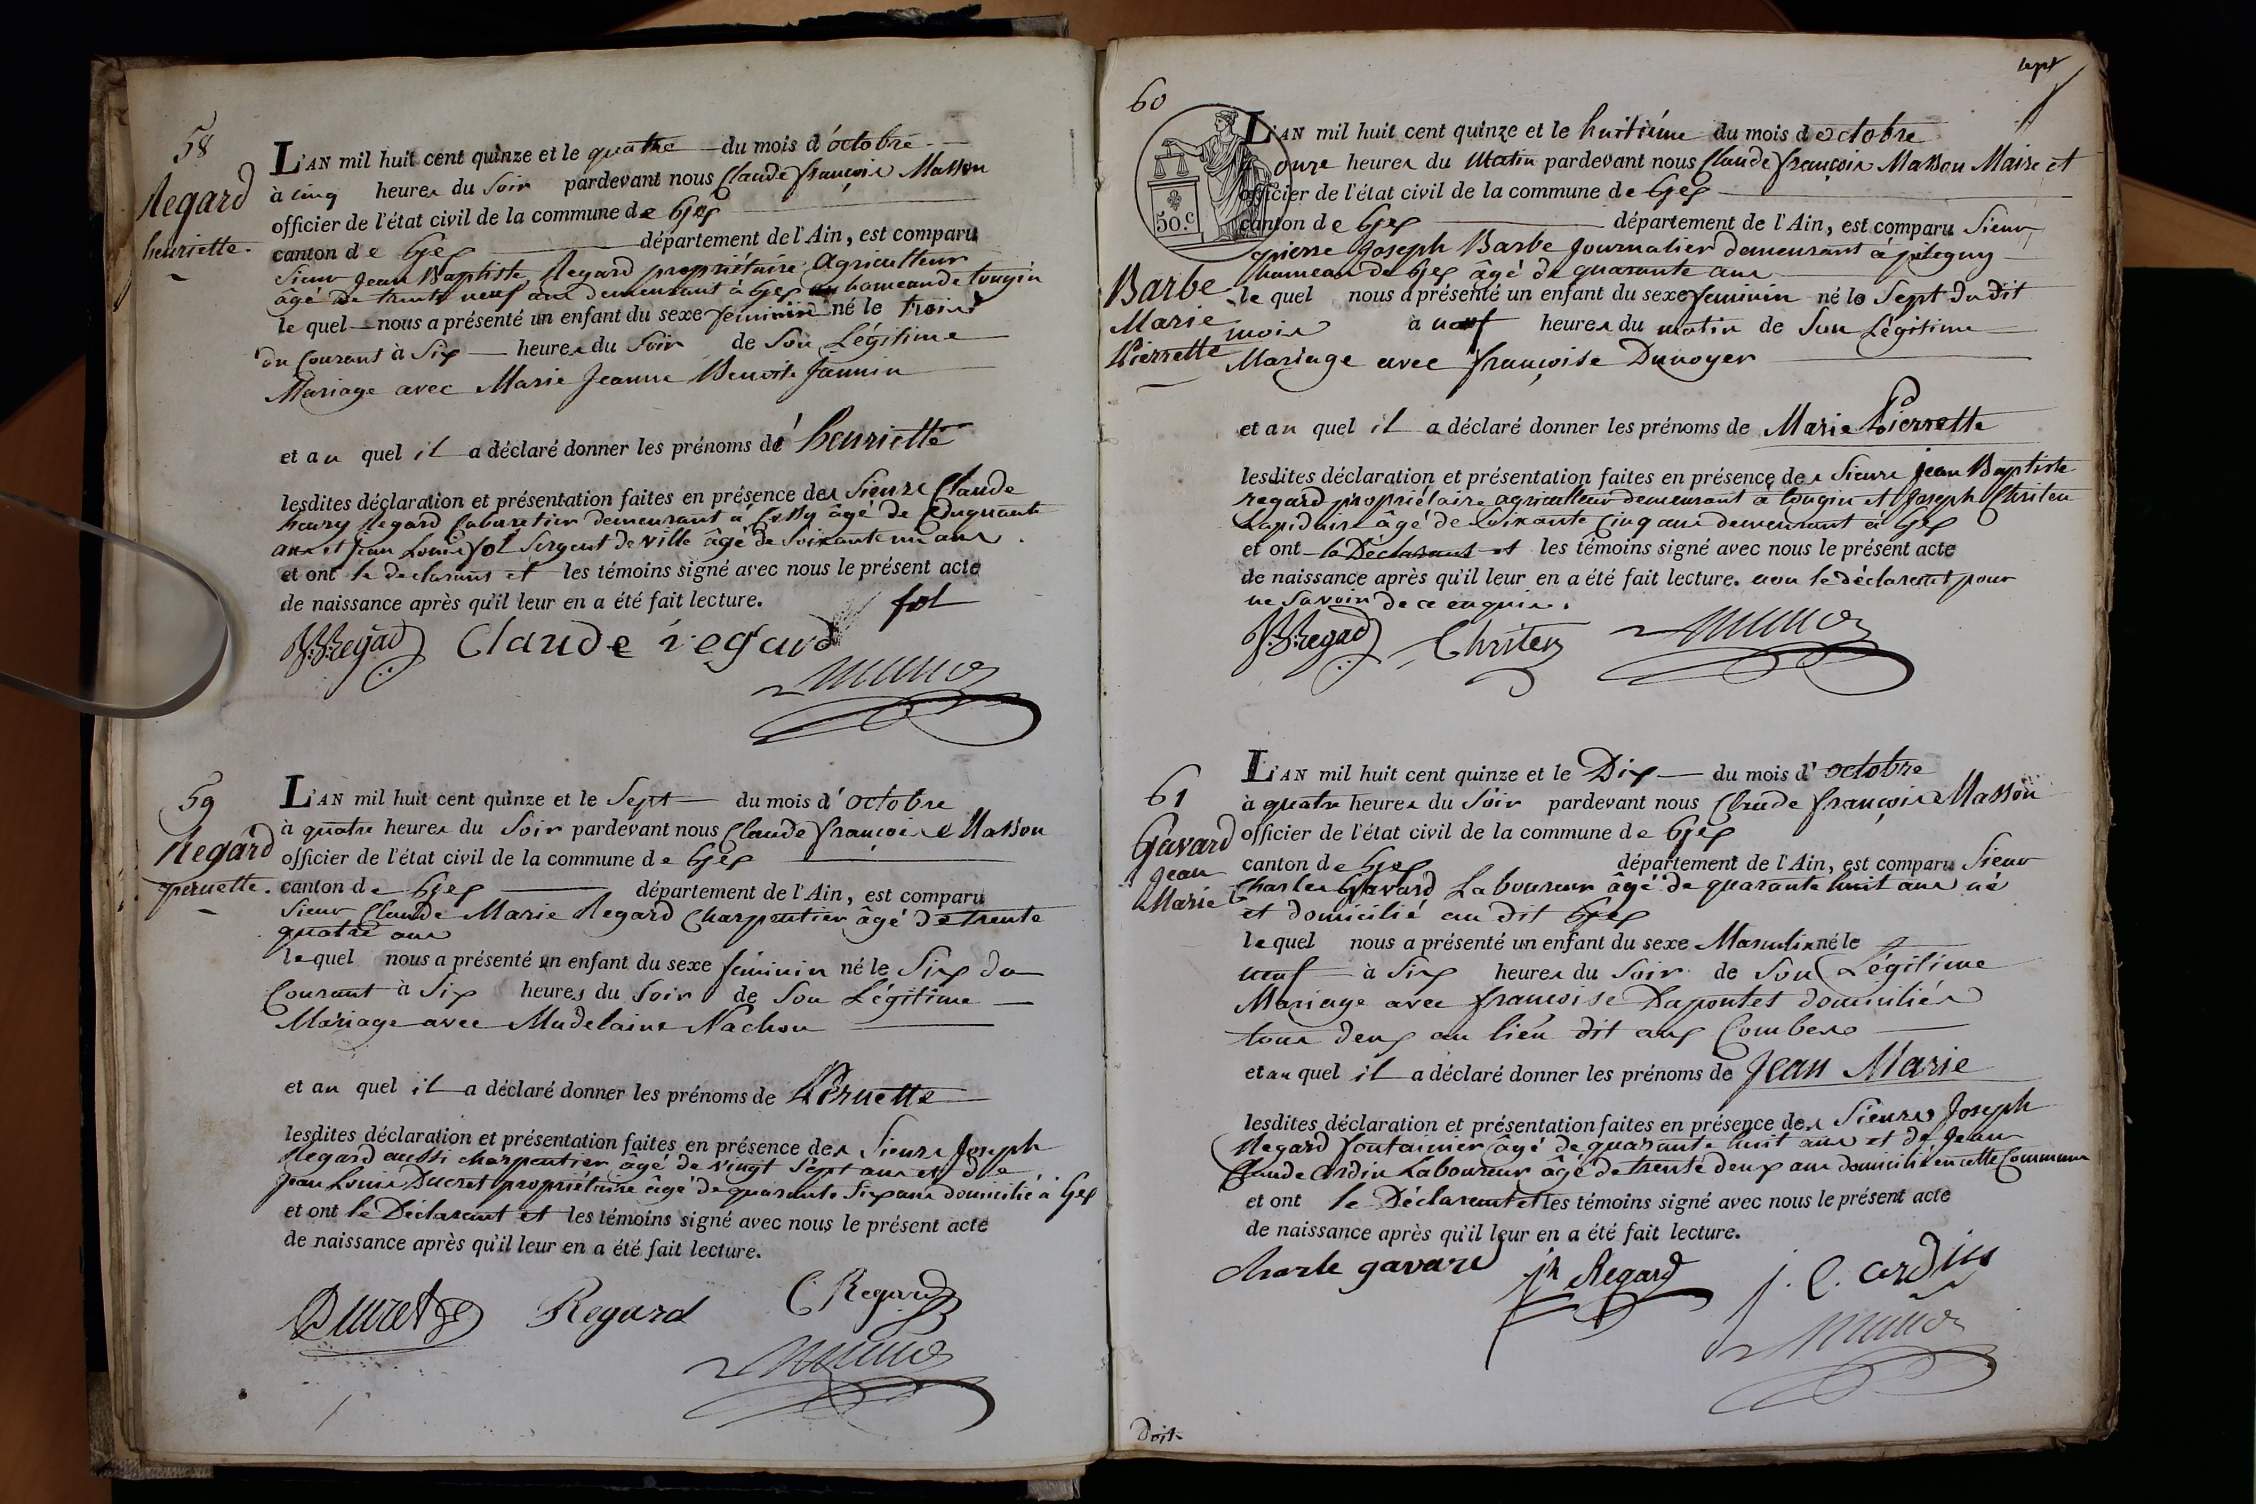 58
Regard
henriette.
L'AN mil huit cent quinze et le quatre du mois d'octobre
à cinq heures du Soir pardevant nous Claude françois Masson
officier de l'état civil de la commune de Gex
canton de Gex département de l'Ain, est comparu
Sieur Jean Baptiste Regard propriétaire Agriculteur
âgé de trente neuf ans demeurant à Gex hameau de tougin
le quel nous a présenté un enfant du sexe feminin né le trois
du Courant à Six heures du Soir de Son Légitime
Mariage avec Marie Jeanne Benoite Jannin
et au quel il a déclaré donner les prénoms de henriette
lesdites déclaration et présentation faites en présence des Sieurs Claude
henry Regard Cabaretier demeurant à Cessy âgé de Cinquante
ans et jean Louis fol Sergent de ville âgé de Soixante un ans.
et ont le declarant et les témoins signé avec nous le présent acte
de naissance après qu'il leur en a été fait lecture.
fol
JBregad Claude regard
59
Regard
pernette.
L'AN mil huit cent quinze et le Sept du mois d'octobre
à quatre heures du Soir pardevant nous Claude françois Masson
officier de l'état civil de la commune de Gex
canton de Gex département de l'Ain, est comparu
Sieur Claude Marie Regard Charpentier âgé de trente
quatre ans
le quel nous a présenté un enfant du sexe féminin né le Six du
Courant à Six heures du Soir de Son Légitime
Mariage avec Madelaine Nachon
et au quel il a déclaré donner les prénoms de Pernette
lesdites déclaration et présentation faites en présence des Sieurs Joseph
Regard aussi charpentier âgé de vingt Sept ans et de
Jean Louis Ducret propriétaire âgé de quarante Six ans domicilié à Gex
et ont le Déclarant et les témoins signé avec nous le présent acte
de naissance après qu'il leur en a été fait lecture.
Ducret Regard C Regard
sept
60
50.c
Barbe
Marie
Pierrette
L'AN mil huit cent quinze et le huitième du mois d octobre
onze heures du Matin pardevant nous Claude françois Masson Maire et
officier de l'état civil de la commune de Gex
canton de Gex département de l'Ain, est comparu Sieur
pierre Joseph Barbe Journalier demeurant à pitegny
hameau de Gex âgé de quarante ans
le quel nous a présenté un enfant du sexe feminin né le Sept du dit
mois à neuf heures du matin de Son Légitime
Mariage avec françoise Dunoyer
et au quel il a déclaré donner les prénoms de Marie Pierrette
lesdites déclaration et présentation faites en présence des Sieurs Jean Baptiste
regard propriétaire agriculteur demeurant à tougin et Joseph Christen
Lapidaire âgé de Soixante Cinq ans demeurant à Gex
et ont le Déclarant et les témoins signé avec nous le présent acte
de naissance après qu'il leur en a été fait lecture. non le déclarant pour
ne Savoir de ce enquis.
JBregad Christen
61
Gavard
Jean
Marie
L'AN mil huit cent quinze et le Dix du mois d'octobre
à quatre heures du Soir pardevant nous Claude françois Masson
officier de l'état civil de la commune de Gex
canton de Gex département de l'Ain, est comparu Sieur
Charles Gavard Laboureur âgé de quarante huit ans né
et domicilié au dit Gex
le quel nous a présenté un enfant du sexe Masculin né le
neuf à Six heures du Soir de Son Légitime
Mariage avec françoise Dapontet domiciliés
tous deux au lieu dit aux Combes
et au quel il a déclaré donner les prénoms de Jean Marie
lesdites déclaration et présentation faites en présence des Sieurs Joseph
Regard fontainier âgé de quarante huit ans et de Jean
Claude Ardin Laboureur âgé de trente deux ans domicilié en cette Commune
et ont le Déclarant et les témoins signé avec nous le présent acte
de naissance après qu'il leur en a été fait lecture.
Charle gavard jh Regard j. C. ardin